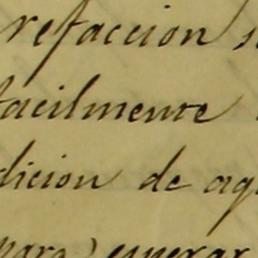 refaccion s
facilmente
dicion de ag
para) esperar